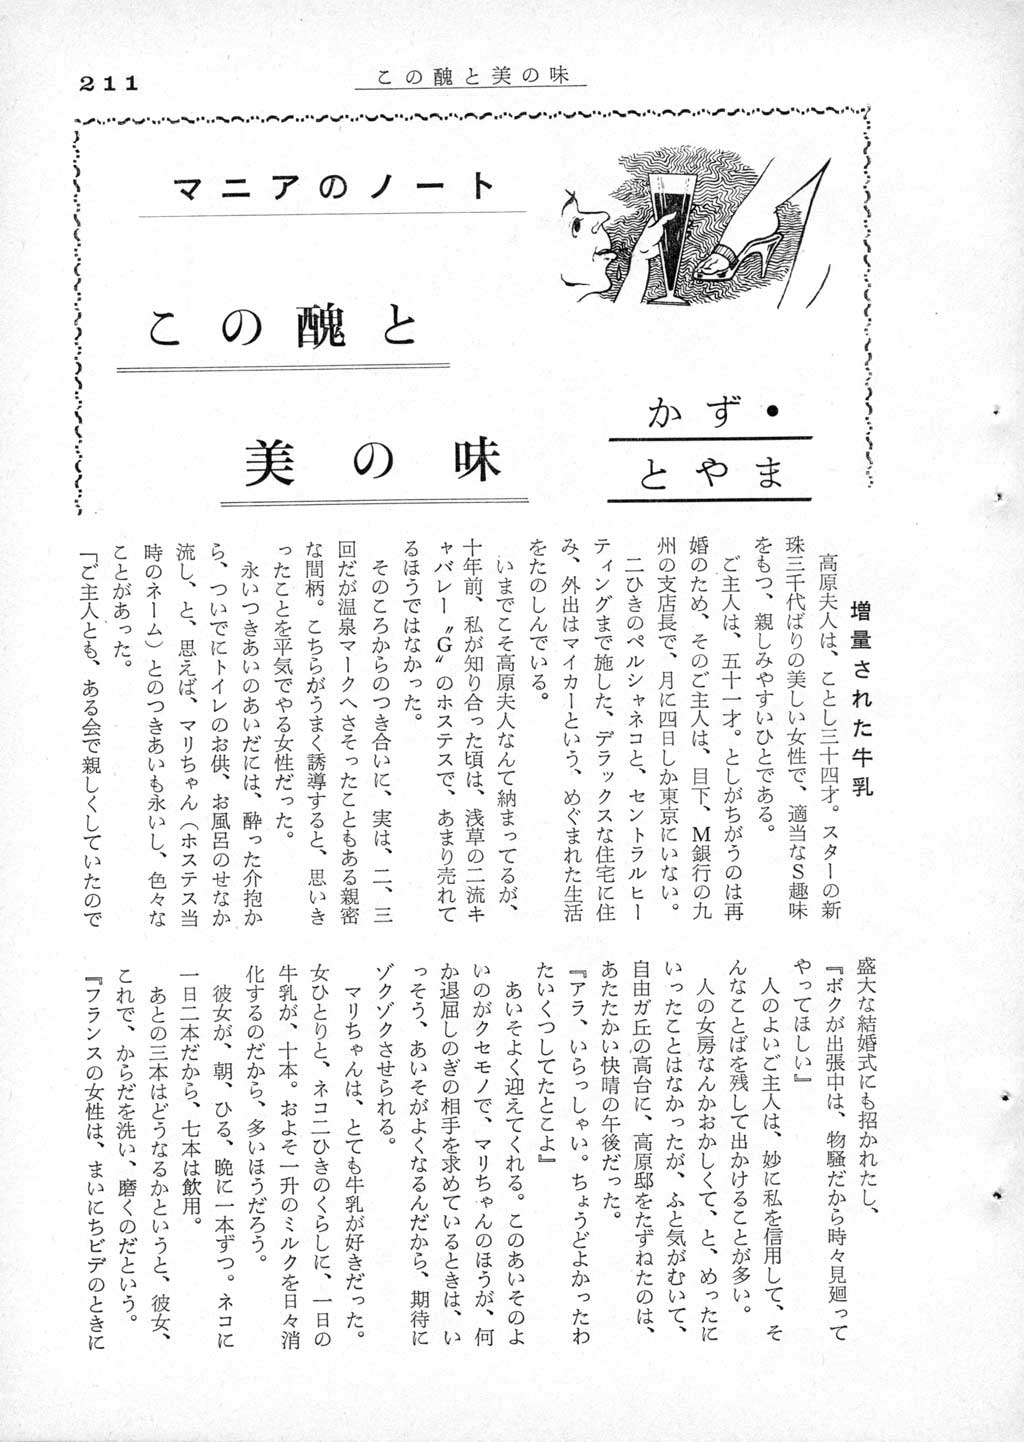 211
この醜と美の味
マニアのノート
この醜と
美の味
かず・
とやま
増量された牛乳
高原夫人は、ことし三十四才。スターの新
珠三千代ばりの美しい女性で、適当なS趣味
をもつ、親しみやすいひとである。
ご主人は、五十一才。としがちがうのは再
婚のため、そのご主人は、目下、M銀行の九
州の支店長で、月に四日しか東京にいない。
二ひきのペルシャネコと、セントラルヒー
ティングまで施した、デラックスな住宅に住
み、外出はマイカーという、めぐまれた生活
をたのしんでいる。
いまでこそ高原夫人なんて納まってるが、
十年前、私が知り合った頃は、浅草の二流キ
ャバレー〝G〟のホステスで、あまり売れて
るほうではなかった。
そのころからのつき合いに、実は、二、三
回だが温泉マークへさそったこともある親密
な間柄。こちらがうまく誘導すると、思いき
ったことを平気でやる女性だった。
永いつきあいのあいだには、酔った介抱か
ら、ついでにトイレのお供、お風呂のせなか
流し、と、思えば、マリちゃん（ホステス当
時のネーム）とのつきあいも永いし、色々な
ことがあった。
「ご主人とも、ある会で親しくしていたので
盛大な結婚式にも招かれたし、
『ボクが出張中は、物騒だから時々見廻って
やってほしい』
人のよいご主人は、妙に私を信用して、そ
んなことばを残して出かけることが多い。
人の女房なんかおかしくて、と、めったに
いったことはなかったが、ふと気がむいて、
自由ガ丘の高台に、高原邸をたずねたのは、
あたたかい快晴の午後だった。
『アラ、いらっしゃい。ちょうどよかったわ
たいくつしてたとこよ』
あいそよく迎えてくれる。このあいそのよ
いのがクセモノで、マリちゃんのほうが、何
か退屈しのぎの相手を求めているときは、い
っそう、あいそがよくなるんだから、期待に
ゾクゾクさせられる。
マリちゃんは、とても牛乳が好きだった。
女ひとりと、ネコ二ひきのくらしに、一日の
牛乳が、十本。およそ一升のミルクを日々消
化するのだから、多いほうだろう。
彼女が、朝、ひる、晩に一本ずつ。ネコに
一日二本だから、七本は飲用。
あとの三本はどうなるかというと、彼女、
これで、からだを洗い、磨くのだという。
『フランスの女性は、まいにちビデのときに